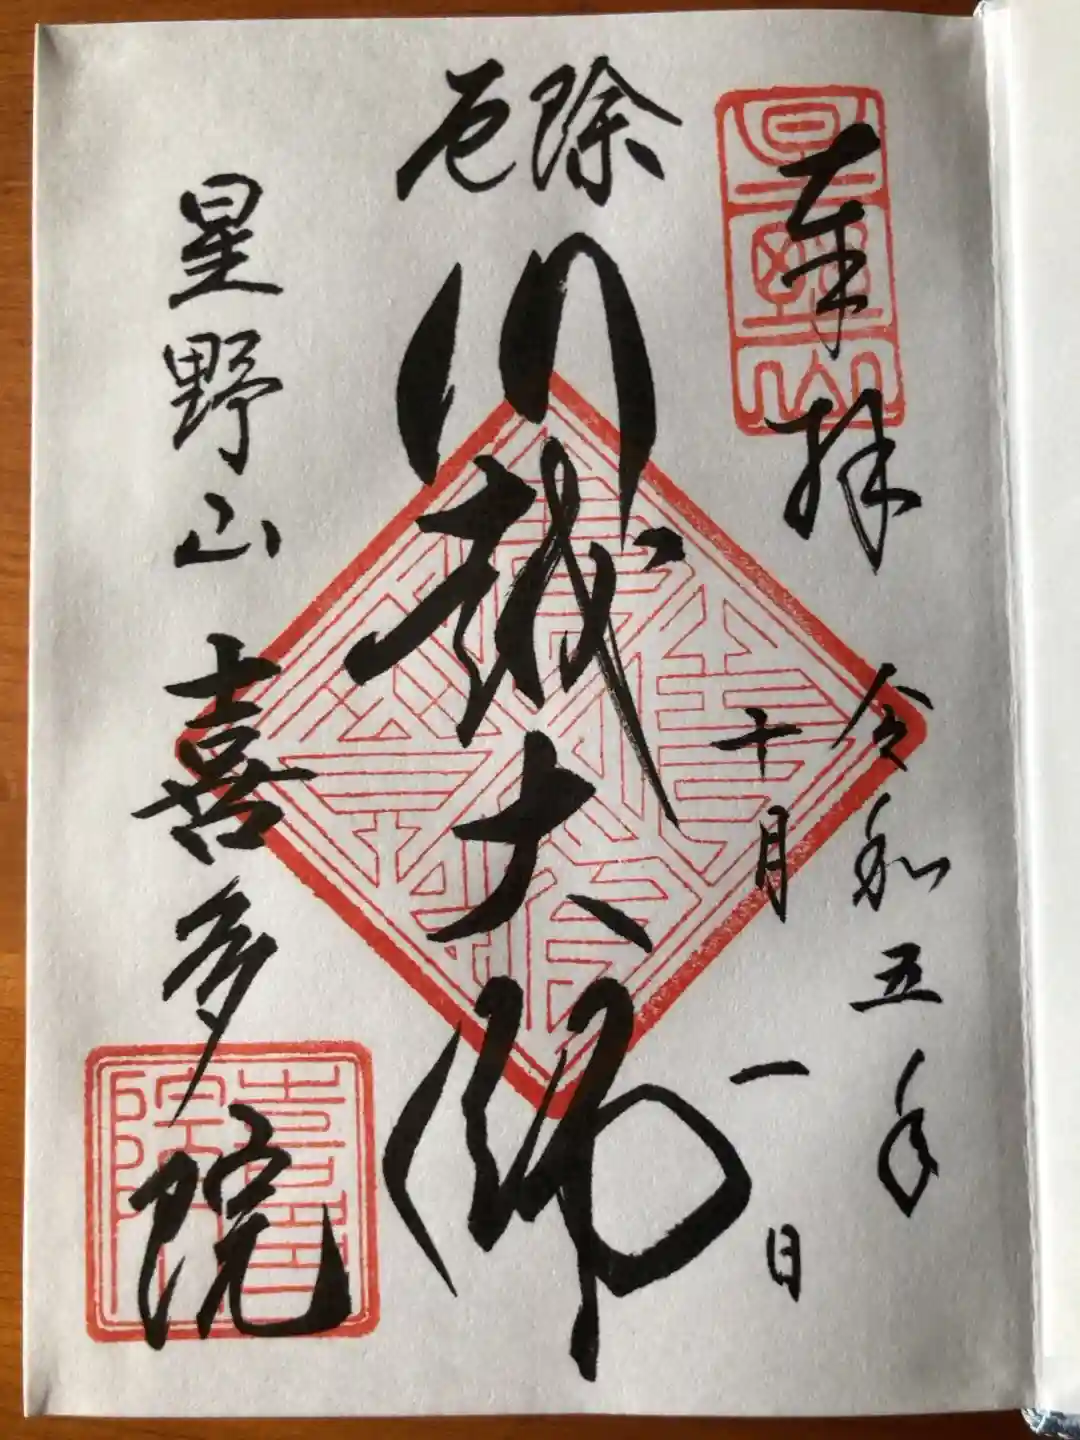 奉拝
令和五年
十月一日
厄除
川越大師
星野山
喜多院
星野山